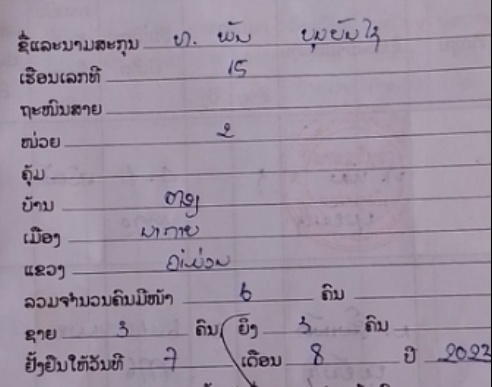 ຊື່ແລະນາມສະກຸນ ທ. ພັນ
ເຮືອນເລກທີ 15
ຖະໜົນສາຍ
ໜ່ວຍ 2
ຄຸ້ມ
ບ້ານ
ເມືອງ ນາກາຍ
ແຂວງ ຄຳມ່ວນ
ລວມຈຳນວນຄົນມີໜ້າ 6 ຄົນ
ຊາຍ 3 ຄົນ ຍິງ 3 ຄົນ
ຢັ້ງຢືນໃຫ້ວັນທີ 7 ເດືອນ 8 ປີ 2022